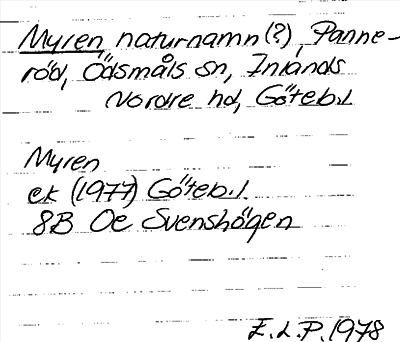 Myren, naturnamn(?), Panne-
röd, Ödsmåls sn, Inlands
Nordre hd, Göteb.l
Myren
ek (1977) Göteb.l.
8B Oe Svenshögen
E.L.P. 1978